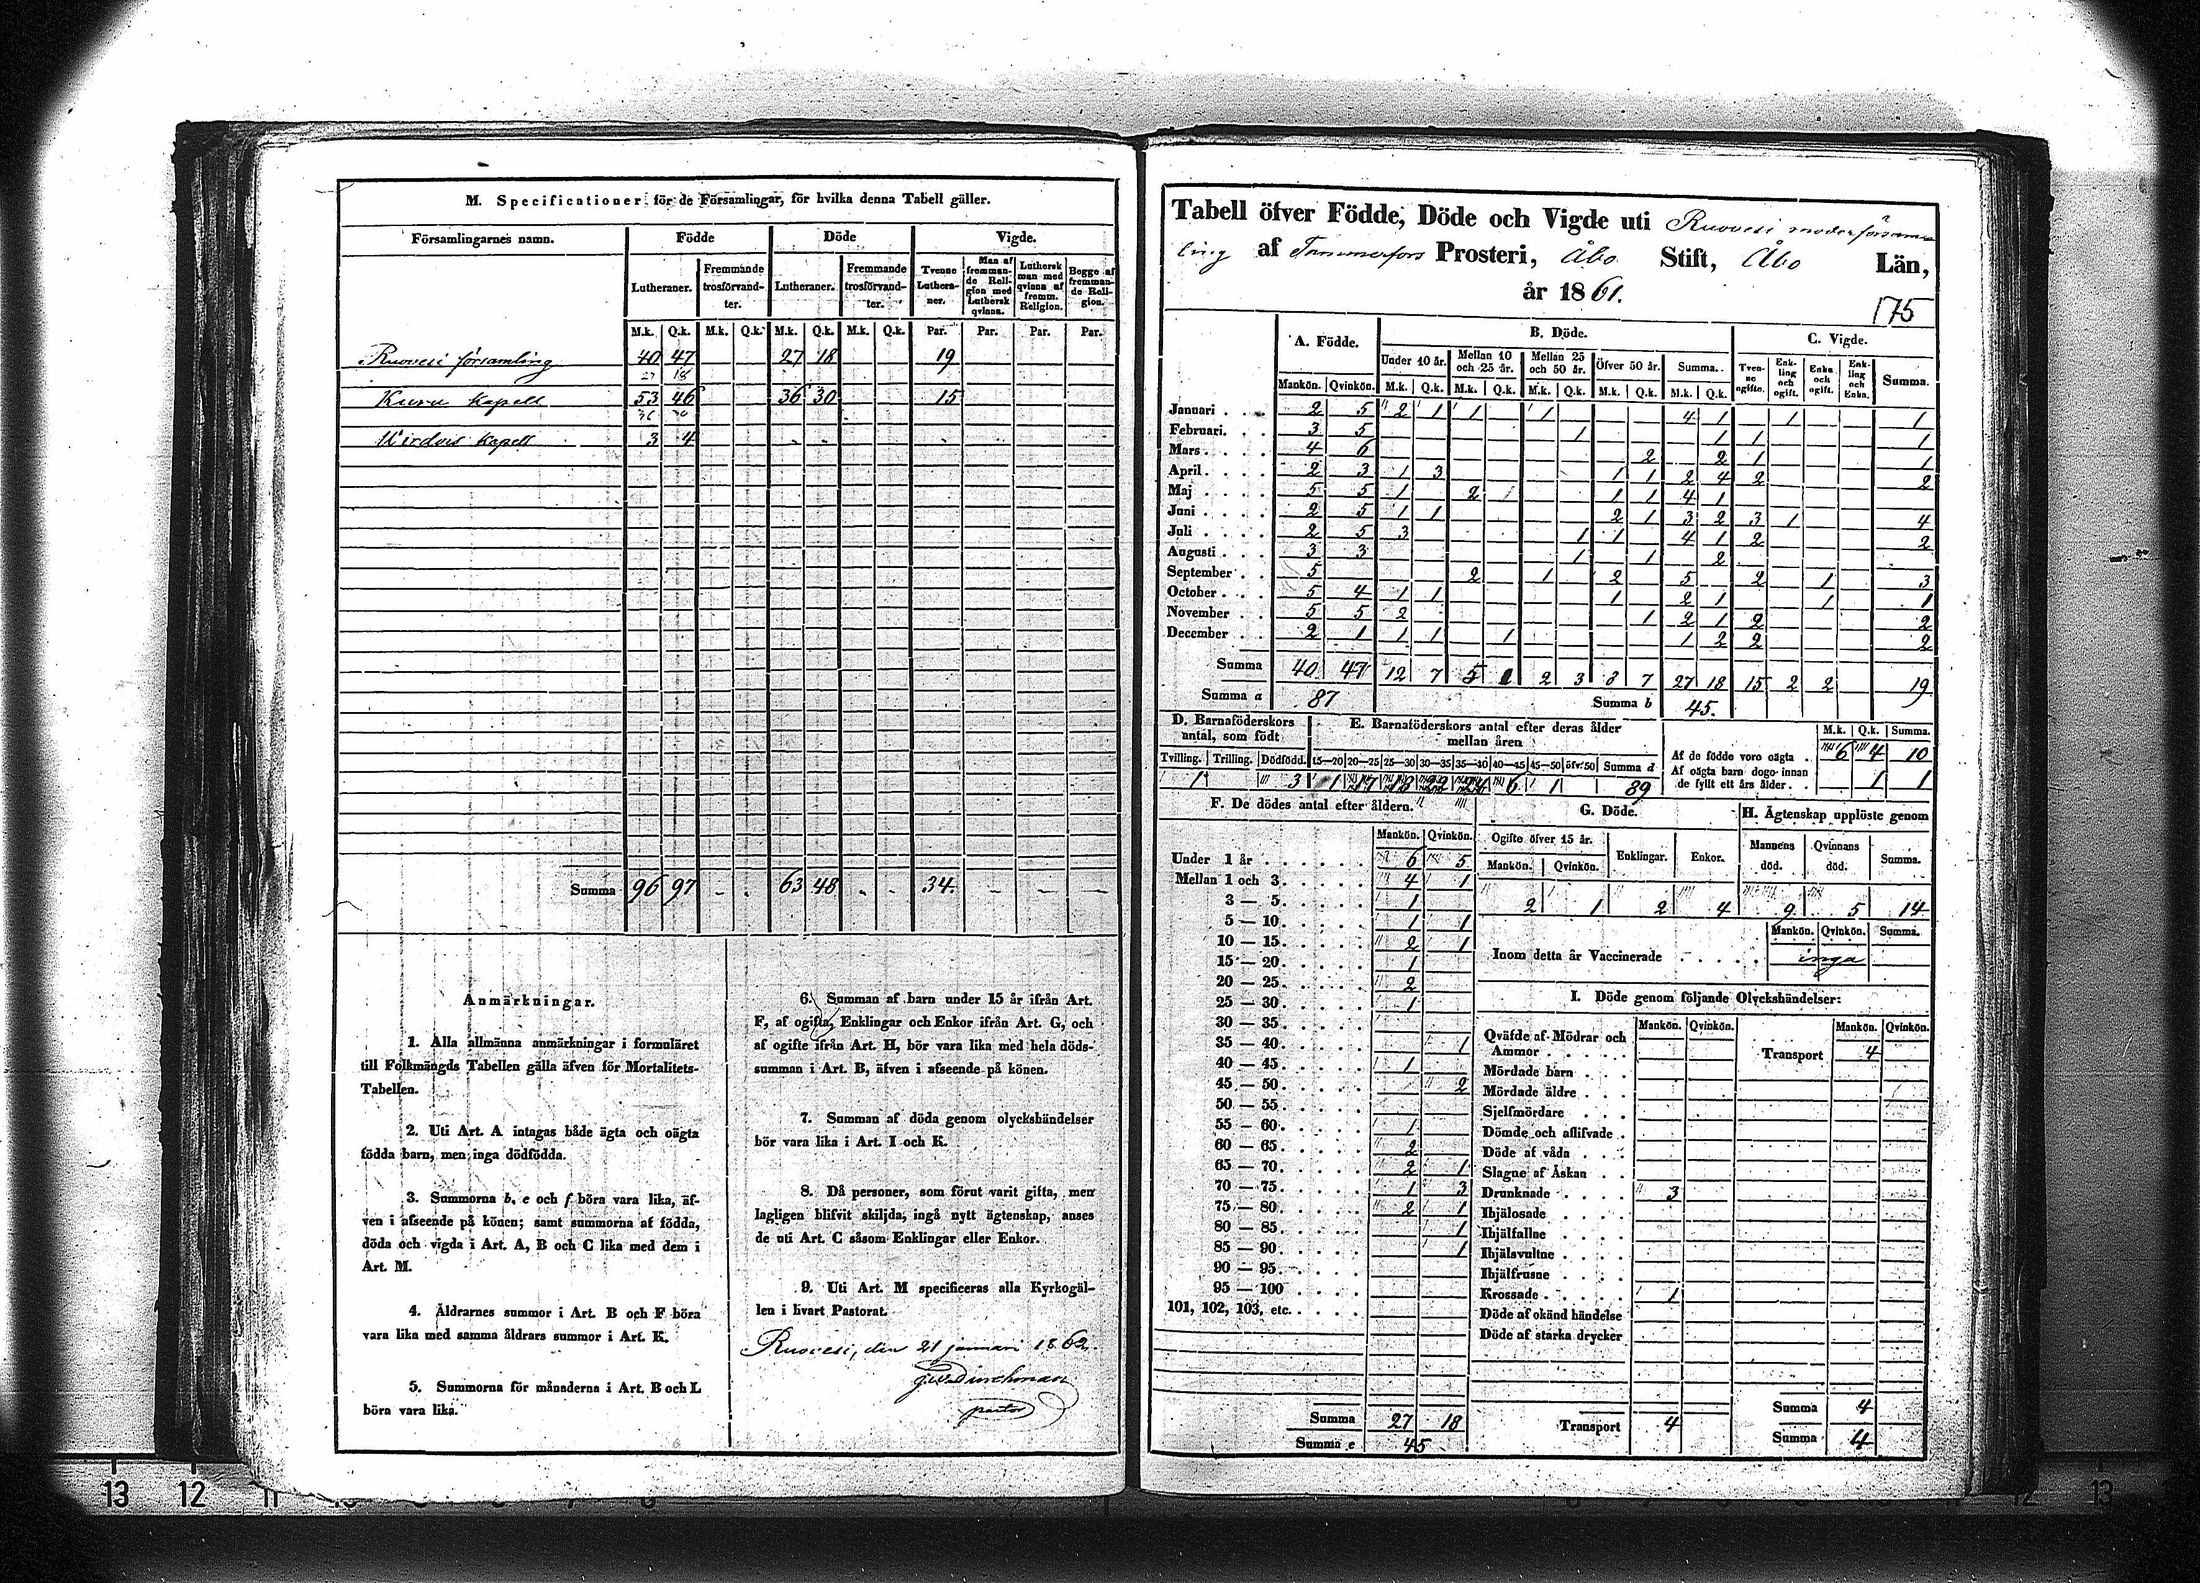 M. Specificationer för de Församlingar, för hvilka denna Tabell gäller.
Församlingarnes namn. Födde Döde Vigde.
Lutheraner. Fremmande trosförvandter. Lutheraner. Fremmande trosförvandter. Tvenne Lutheraner. Man af fremmande Religion med Luthersk qvinna. Luthersk man med qvinna af fremm. Religion. Begge af fremmande Religion.
M.k. Q.k. M.k. Q.k. M.k. Q.k. M.k. Q.k. Par. Par. Par. Par.
Ruovesi församling 40 47 27 18 19
27 18
Kuru kapell 53 46 36 30 15
36 30
Wirdois kapell 3 4 - -
Summa 96 97 - - 63 48 - - 34. - - -
Anmärkningar.
1. Alla allmänna anmärkningar i formuläret
till Folkmängds Tabellen gälla äfven för Mortalitets-
Tabellen.
2. Uti Art. A intagas både ägta och oägta
födda barn, men inga dödfödda.
3. Summorna b, e och f böra vara lika, äf-
ven i afseende på könen; samt summorna af födda,
döda och vigda i Art. A, B och C lika med dem i
Art. M.
4. Åldrarnes summor i Art. B och F böra
vara lika med samma åldrars summor i Art. K.
5. Summorna för månaderna i Art. B och L
böra vara lika.
6. Summan af barn under 15 år ifrån Art.
F, af ogifta, Enklingar och Enkor ifrån Art. G, och
af ogifte ifrån Art. H, bör vara lika med hela döds-
summan i Art. B, äfven i afseende på könen.
7. Summan af döda genom olyckshändelser
bör vara lika i Art. I och K.
8. Då personer, som förut varit gifta, men
lagligen blifvit skiljda, ingå nytt ägtenskap, anses
de uti Art. C såsom Enklingar eller Enkor.
9. Uti Art. M specificeras alla Kyrkogäl-
len i hvart Pastorat.
Ruovesi, den 21 januari 1862.
G.W. Durchman
pastor
Tabell öfver Födde, Döde och Vigde uti Ruovesi moderförsam
ling af Tammerfors Prosteri, Åbo Stift, Åbo Län,
år 1861.
175
A. Födde. B. Döde. C. Vigde.
Under 10 år. Mellan 10 och 25 år. Mellan 25 och 50 år. Öfver 50 år. Summa. Tvenne ogifte. Enkling och ogift. Enka och ogift. Enkling och Enka. Summa.
Mankön. Qvinkön. M.k. Q.k. M.k. Q.k. M.k. Q.k. M.k. Q.k. M.k. Q.k.
Januari 2 5 2 1 1 1 4 1 1 1
Februari 3 5 1 1 1 1
Mars 4 6 2 2 1 1
April 2 3 1 3 1 1 2 4 2 2
Maj 5 5 1 2 1 1 4 1
Juni 2 5 1 1 2 1 3 2 3 1 4
Juli 2 5 3 1 1 4 1 2 2
Augusti 3 3 1 1 2
September 5 2 1 2 5 2 1 3
October 5 4 1 1 1 2 1 1 1
November 5 5 2 1 2 1 2 2
December 2 1 1 1 1 1 2 2 2
Summa 40 47 12 7 5 1 2 3 8 7 27 18 15 2 2 19
Summa a 87 Summa b 45.
D. Barnaföderskors antal, som födt E. Barnaföderskors antal efter deras ålder mellan åren
M.k. Q.k. Summa.
Af de födde voro oägta 6 4 10
Af oägta barn dogo innan de fyllt ett års ålder 1 1
Tvilling. Trilling. Dödfödd. 15—20 20—25 25—30 30—35 35—40 40—45 45—50 öfv. 50 Summa d
1 3 1 17 18 22 24 6 1 89
F. De dödes antal efter åldern.
Mankön. Qvinkön.
Under 1 år 6 5
Mellan 1 och 3 4 1
3 — 5 1
5 — 10 1 1
10 — 15 2 1
15 — 20 1
20 — 25 2
25 — 30 1
30 — 35
35 — 40 1
40 — 45 1
45 — 50 2
50 — 55
55 — 60 1
60 — 65 2
65 — 70 2 1
70 — 75 1 3
75 — 80 2 1
80 — 85 1
85 — 90 1
90 — 95
95 — 100
101, 102, 103, etc.
Summa 27 18
Summa e 45
G. Döde.
Ogifte öfver 15 år. Enklingar. Enkor.
Mankön. Qvinkön.
2 1 2 4
H. Ägtenskap upplöste genom
Mannens död. Qvinnans död. Summa.
9 5 14
Mankön. Qvinkön. Summa.
Inom detta år Vaccinerade inga
I. Döde genom följande Olyckshändelser:
Mankön. Qvinkön. Mankön. Qvinkön.
Qväfde af Mödrar och Ammor
Transport 4
Mördade barn
Mördade äldre
Sjelfmördare
Dömde och aflifvade
Döde af våda
Slagne af Åskan
Drunknade 3
Ihjälosade
Ihjälfallne
Ihjälsvultne
Ihjälfrusne
Krossade 1
Döde af okänd händelse
Döde af starka drycker
Summa 4
Transport 4
Summa 4
13 12 11
12 13